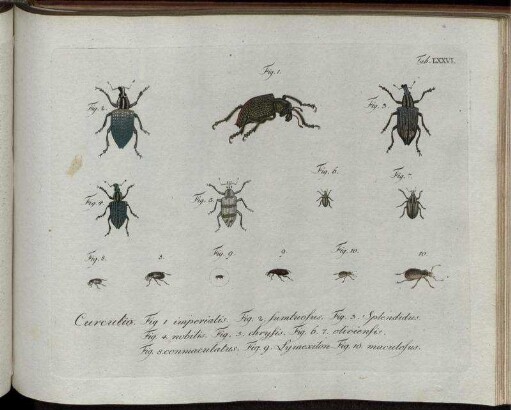 Tab. LXXVI.
Fig. 1.
Fig. 2.
Fig. 3.
Fig. 4.
Fig. 5.
Fig. 6.
Fig. 7.
Fig. 8.
8.
Fig. 9.
9.
Fig. 10.
10.
Curculio. Fig. 1 imperialis. Fig. 2. sumtuosus. Fig. 3. Splendidus.
Fig. 4. nobilis. Fig. 5. chrysis. Fig. 6. 7.
Fig. 8. conmaculatus. Fig. 9. Lymexilon Fig. 10. maculosus.